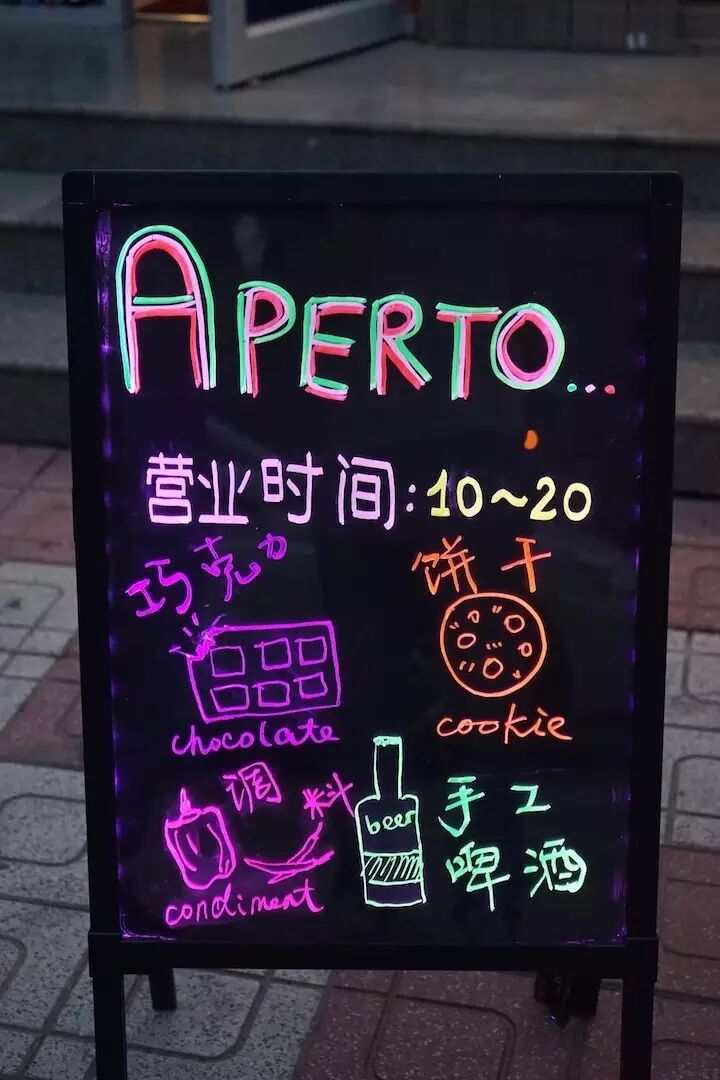 APERTO...
营业时间:10~20
巧克力
饼干
chocolate
cookie
调料
condiment
beer
手工
啤酒